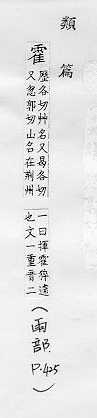 類篇
霍
歷各切艸名又曷各切
又忽郭切山名在荆州
一曰揮霍猝遽
也文一重音二
(雨部. P.425)